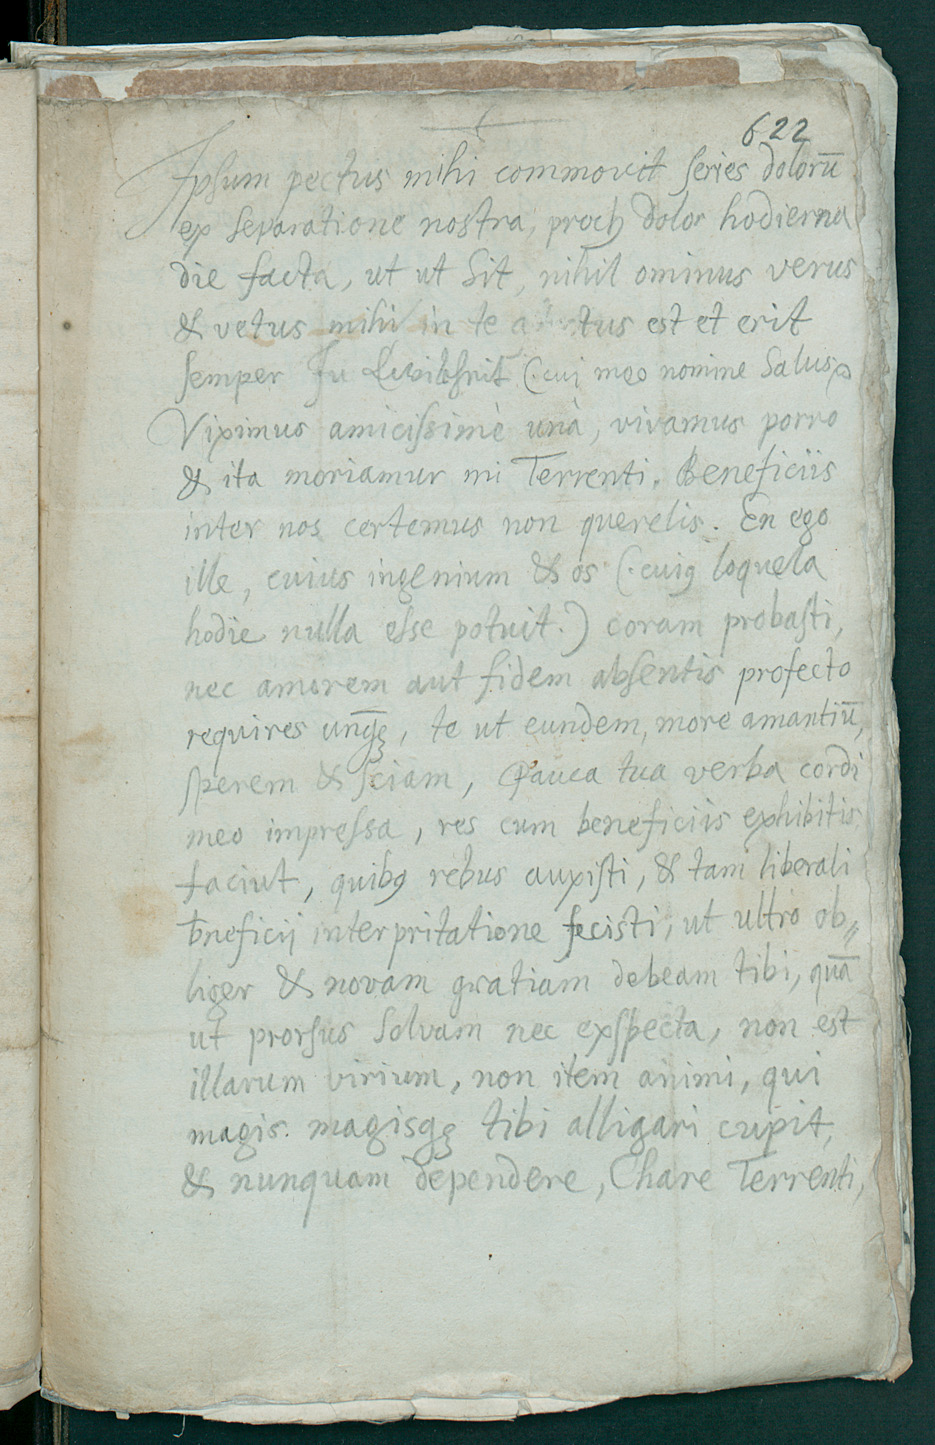 622
Ipsum pectus mihi commovit series dolorū
ex separatione nostra, proch dolor hodierna
die facta, ut ut sit, nihil ominus verus
& vetus mihi in te est et erit
semper Tu (.cui meo nomine Salus
Viximus amicissimè unà, vivamus porro
& ita moriamur mi Terrenti. Beneficiis
inter nos certemus non querelis. En ego
ille, cuius ingenium & os (.cuiꝯ loquela
hodie nulla esse potuit.) coram probasti,
nec amorem aut fidem absentis profecto
requires unq̄ꝫ, te ut eundem, more amantiū,
sperem & sciam, Pauca tua verba cordi
meo impressa, res cum beneficiis exhibitis
faciut, quibꝯ rebus auxisti, & tam liberali
b̄neficij interpritatione fecisti, ut ultro ob„
liger & novam gratiam debeam tibi, quā
ut prorsus solvam nec exspecta, non est
illarum virium, non item animi, qui
magis magisqꝫ tibi alligari cupit,
& nunquam dependere, Chare Terrenti,